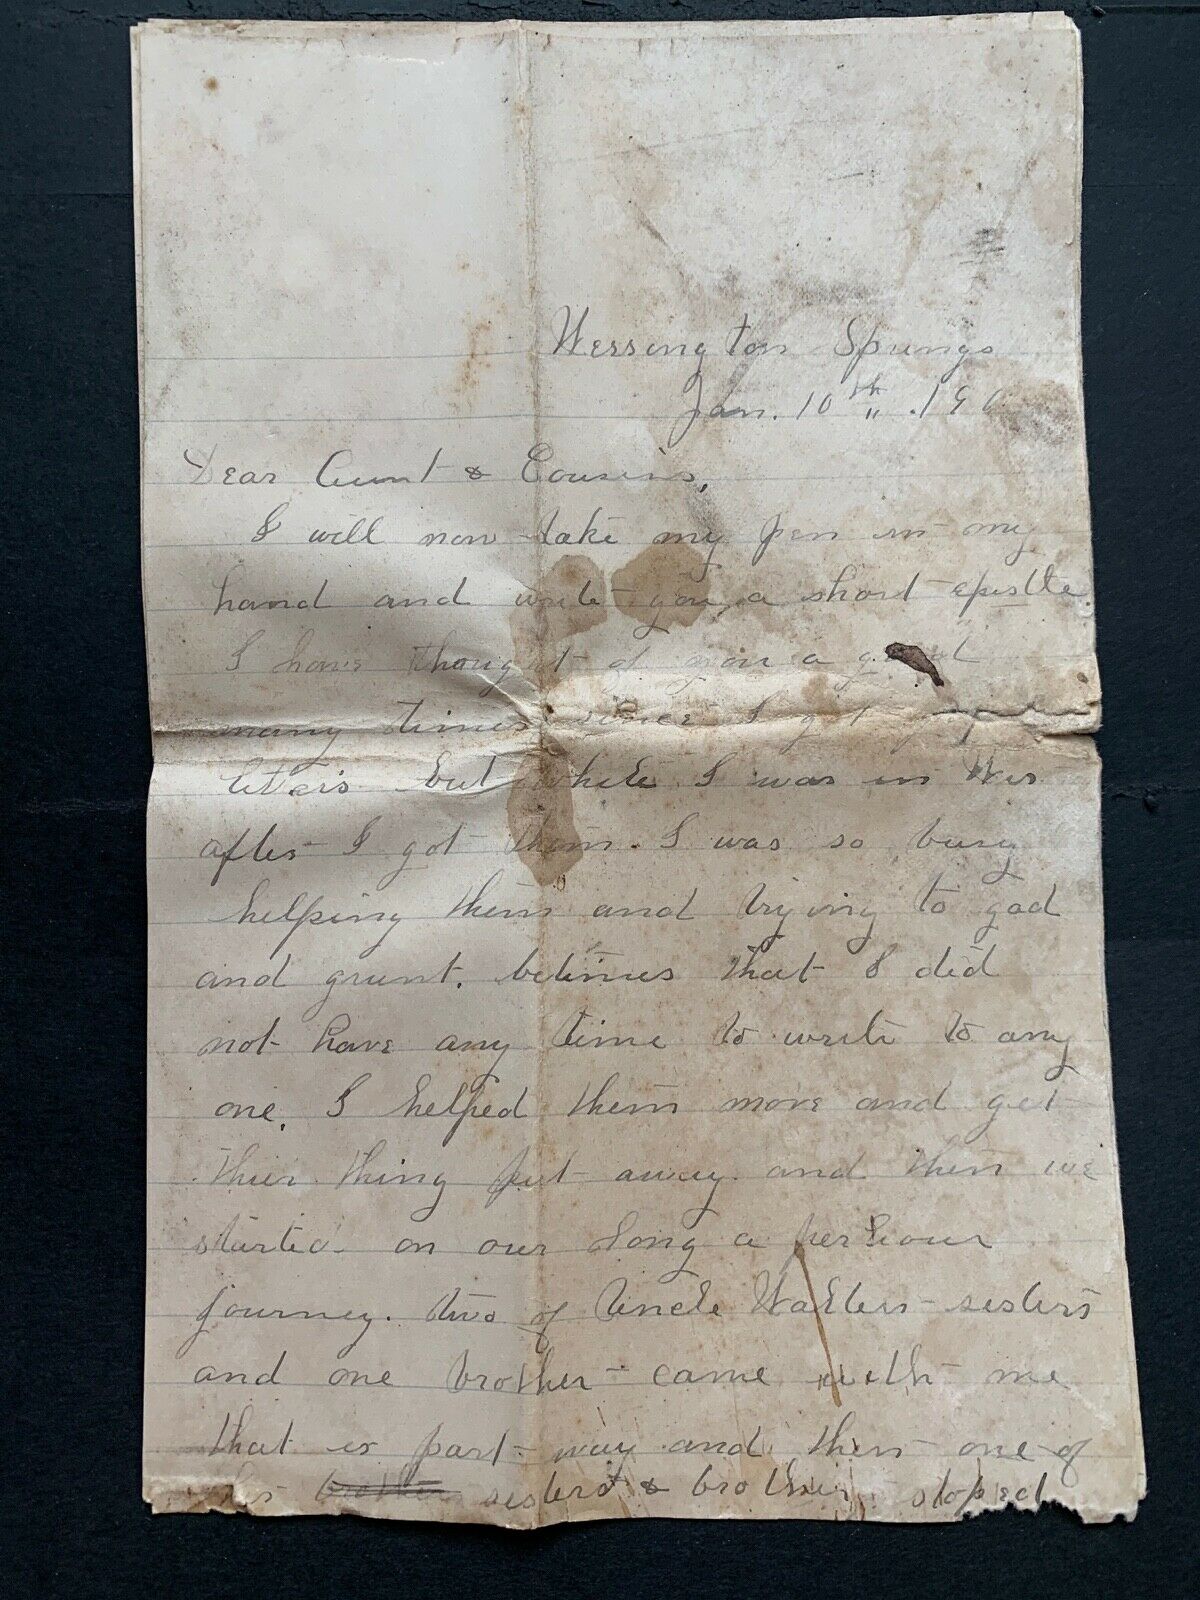 Wessington Springs
Jan. 10th 190
Dear Aunt & Cousins,
I will now take my pen in my
hand and write you a short epistle.
I have thought of you a great
many times since I got your
letters but while I was in Wis
after I got them. I was so busy
helping them and trying to gad
and grunt. betimes that I did
not have any time to write to any
one. I helped them move and get
thier thing put away and then we
started on our long a perlious
journey. two of Uncle Walters sisters
and one brother came with me
that is part way and then one of
his brother sisters & brother stoped